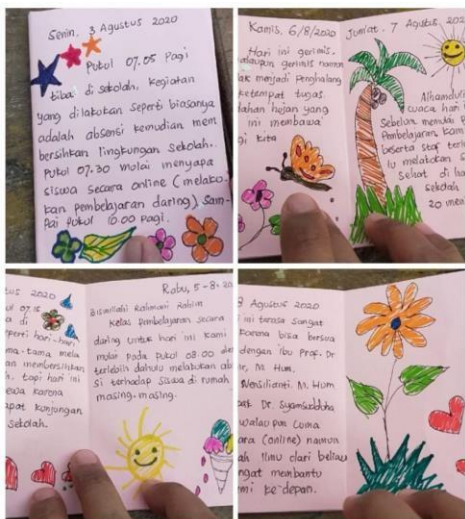 Senin, 3 Agustus 2020
Pukul 07.05 Pagi
tiba di sekolah. Kegiatan
yang dilakukan seperti biasanya
adalah absensi kemudian mem
bersihkan lingkungan sekolah.
Pukul 07.30 mulai menyapa
siswa secara online (melaku
kan pembelajaran daring) sam-
pai pukul 10.00 pagi.
Kamis, 6/8/2020
Hari ini gerimis.
walaupun gerimis namun
ak menjadi penghalang
ketempat tugas.
dahan hujan yang
ini membawa
gi kita
Jum'at, 7 Agustus, 202
Alhamduli
cuaca hari
Sebelum memulai p
Pembelajaran, kam
beserta staf ter
lu melakukan s
Sehat di ha
sekolah
20 men
tus 2020
ul 07.15
a di
perti hari-hari
ma-tama mela
an membersihkan
h. tapi hari ini
ewa karena
apat kunjungan
sekolah.
Rabu, 5-8-20
Bismillahi Rahmani Rahim
Kelas pembelajaran secara
daring untuk hari ini kami
mulai pada pukul 08.00 de
terlebih dahulu melakukan ab
si terhadap siswa di rumah
masing-masing.
8 Agustus 2020
ini terasa sangat
karena bisa bersua
dengan ibu Prof. Dr
ar, M. Hum.
Wensilianti. M. Hum
pak Dr. Syamsudduha
walau pun cuma
ara (online) namun
ah ilmu dari beliau
ngat membantu
mi ke depan.